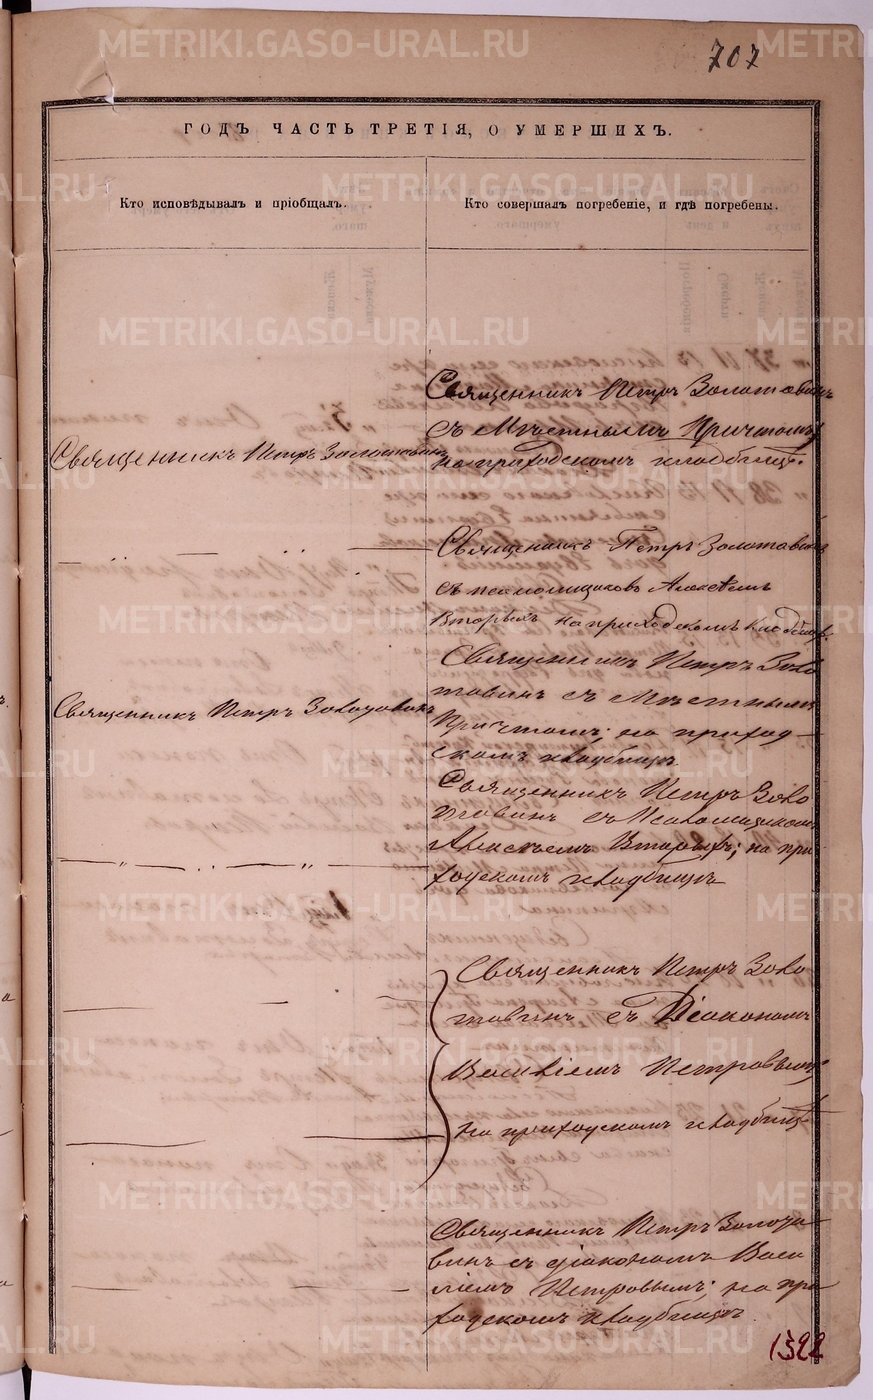 METRIKI.GASO-URAL.RU
707
ГОДЪ ЧАСТЬ ТРЕТІЯ, О УМЕРШИХЪ.
Кто исповѣдывалъ и пріобщалъ.
Кто совершалъ погребеніе, и гдѣ погребены.
Священникъ Петръ Золотавинъ
Священникъ Петръ Золотавинъ
Священникъ Петръ Золотавинъ
съ Мѣстнымъ Причтомъ;
на приходскомъ кладбищѣ.
Священникъ Петръ Золотавинъ
съ псаломщикомъ Алексѣемъ
Вторыхъ на приходскомъ кладбищѣ.
Священникъ Петръ Золо
тавинъ съ Мѣстнымъ
Причтомъ; на приход-
скомъ кладбищѣ
Священникъ Петръ Золо
тавинъ съ Псаломщикомъ
Алексѣемъ Вторыхъ; на при
ходскомъ кладбищѣ
Священникъ Петръ Золо
тавинъ съ Діакономъ
Василіемъ Петровымъ;
на приходскомъ кладбищѣ
Священникъ Петръ Золота-
винъ съ діакономъ Васи
ліемъ Петровымъ; на при
ходскомъ кладбищѣ.
1322